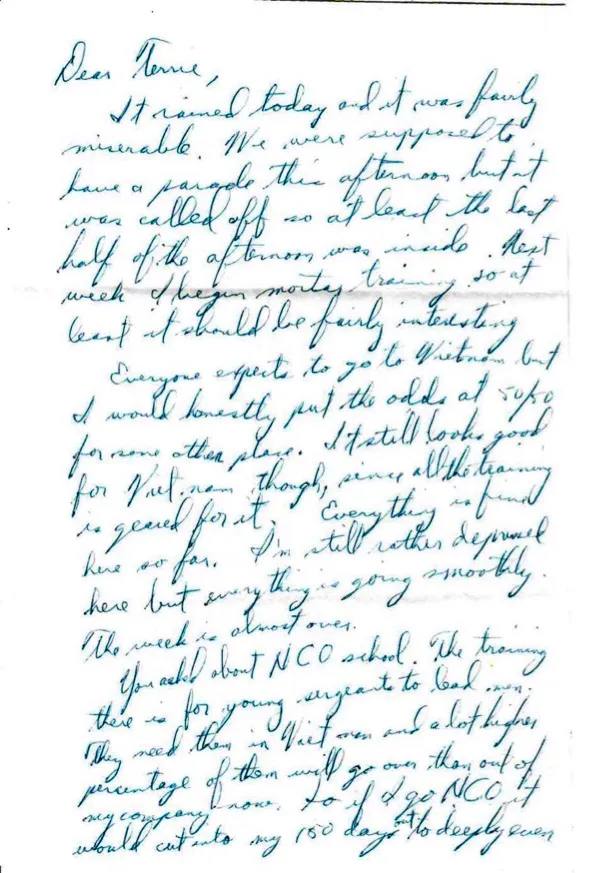 Dear Terrie,
It rained today and it was fairly
miserable. We were supposed to
have a parade this afternoon but it
was called off so at least the last
half of the afternoon was inside. Next
week I begin mortar training so at
least it should be fairly interesting
Everyone expects to go to Vietnam but
I would honestly put the odds at 50/50
for some other place. It still looks good
for Viet nam though, since all the training
is geared for it. Everything is fine
here so far. I'm still rather depressed
here but everything is going smoothly.
The week is almost over.
You asked about NCO school. The training
there is for young sergeants to lead men.
They need them in Viet nam and a lot higher
percentage of them will go over than out of
my company now. So if I go NCO it
would cut into my 150 days out to deeply even